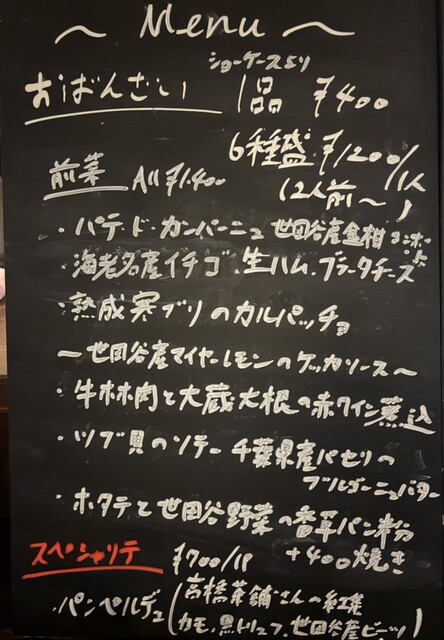 ～ Menu ～
ショーケースより
おばんざい 1品 ¥400
6種盛 ¥1200/1人
(2人前～)
前菜 All ¥1400
・パテ・ド・カンパーニュ 世田谷産金柑コンポート
・海老名産イチゴ・生ハム・ブラータチーズ
・熟成寒ブリのカルパッチョ
～世田谷産マイヤーレモンのケッカソース～
・牛ホホ肉と大蔵大根の赤ワイン煮込
・ツブ貝のソテー 千葉県産パセリの
ブルゴーニュバター
・ホタテと世田谷野菜の香草パン粉
焼き +400
スペシャリテ ¥700/1P
・パンペルデュ(高橋茶舗さんの紅茶
カモ、黒トリュフ、世田谷産ビーツ)